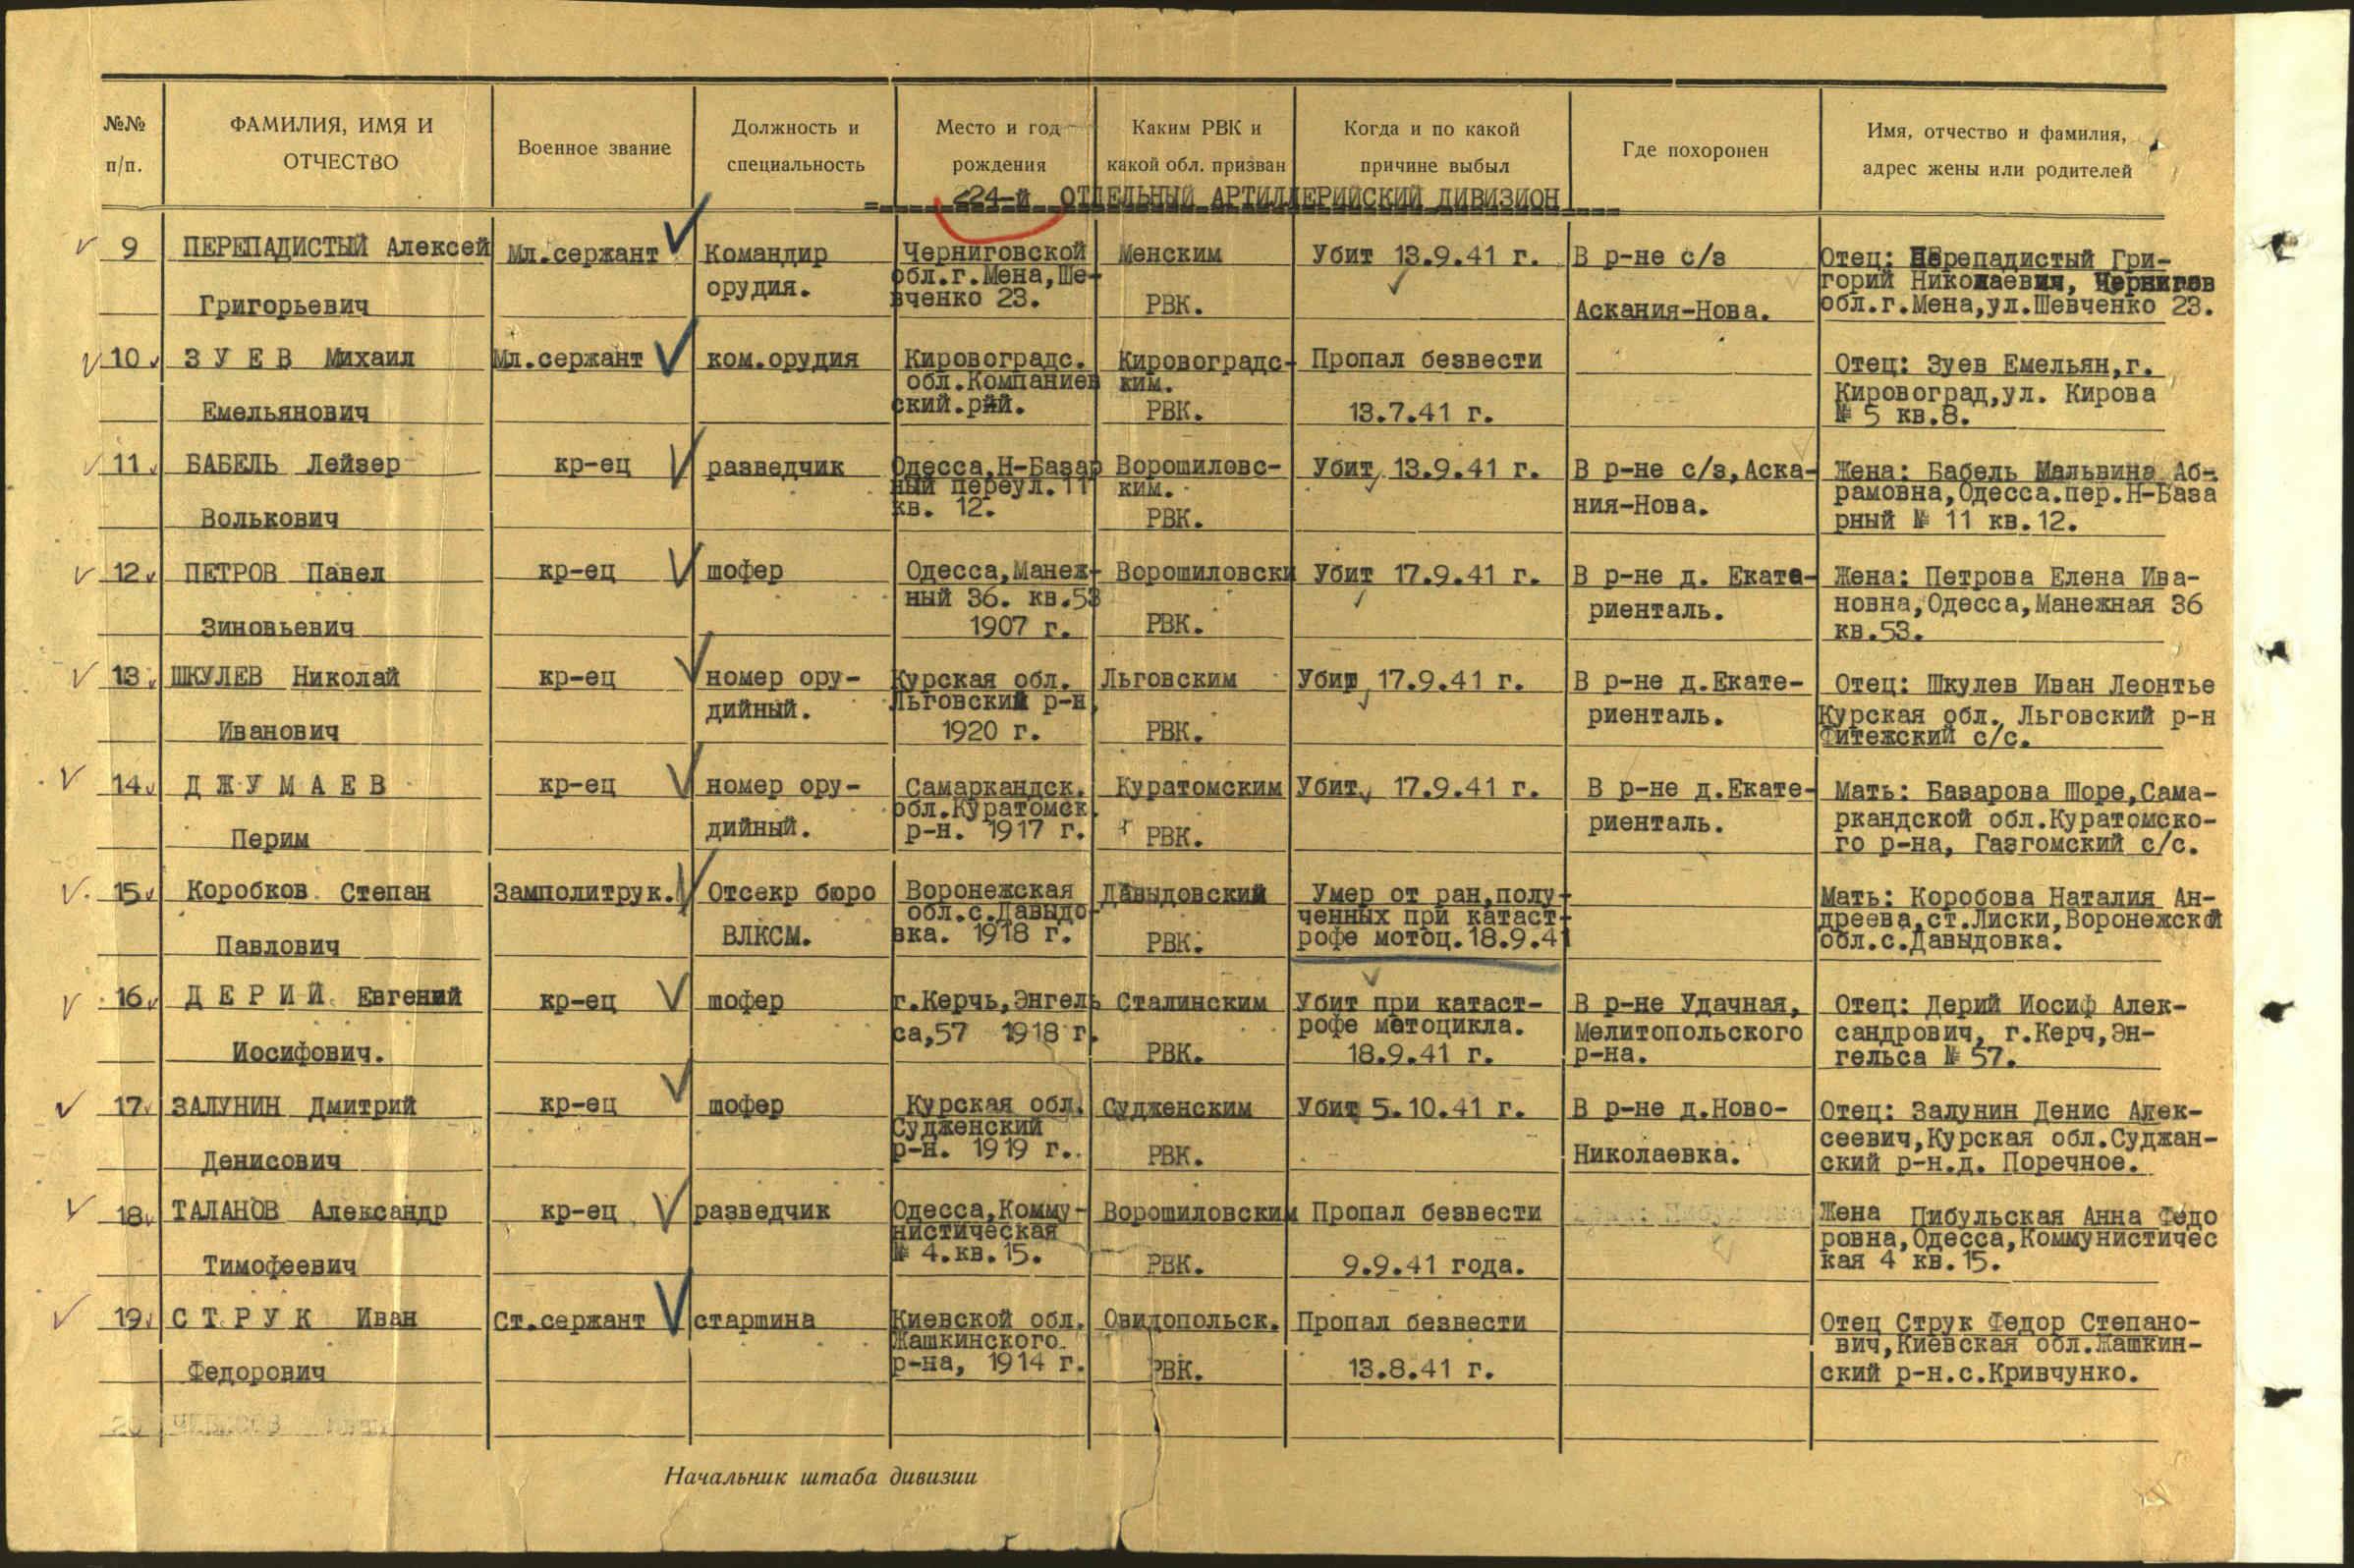 №№ п/п.
ФАМИЛИЯ, ИМЯ И ОТЧЕСТВО
Военное звание
Должность и специальность
Место и год рождения
Каким РВК и какой обл. призван
Когда и по какой причине выбыл
Где похоронен
Имя, отчество и фамилия, адрес жены или родителей
224-й ОТДЕЛЬНЫЙ АРТИЛЛЕРИЙСКИЙ ДИВИЗИОН
9
ПЕРЕПАДИСТЫЙ Алексей
Григорьевич
Мл.сержант
Командир
орудия.
Черниговской
обл.г.Мена,Ше-
вченко 23.
Менским
РВК.
Убит 13.9.41 г.
В р-не с/з
Аскания-Нова.
Отец: Перепадистый Гри-
горий Николаевич, Чернигов
обл.г.Мена,ул.Шевченко 23.
10
З У Е В Михаил
Емельянович
Мл.сержант
ком.орудия
Кировоградс.
обл.Компаниев
ский.рай.
Кировоградс-
ким.
РВК.
Пропал безвести
13.7.41 г.
Отец: Зуев Емельян,г.
Кировоград,ул. Кирова
№ 5 кв.8.
11
БАБЕЛЬ Лейзер
Волькович
кр-ец
разведчик
Одесса,Н-Базар
ный переул.11
кв. 12.
Ворошиловс-
ким.
РВК.
Убит 13.9.41 г.
В р-не с/з,Аска-
ния-Нова.
Жена: Бабель Мальвина Аб-
рамовна,Одесса.пер.Н-База
рный № 11 кв.12.
12
ПЕТРОВ Павел
Зиновьевич
кр-ец
шофер
Одесса,Манеж-
ный 36. кв.53
1907 г.
Ворошиловски
РВК.
Убит 17.9.41 г.
В р-не д. Екате-
риенталь.
Жена: Петрова Елена Ива-
новна,Одесса,Манежная 36
кв.53.
13
ШКУЛЕВ Николай
Иванович
кр-ец
номер ору-
дийный.
Курская обл.
Льговский р-н
1920 г.
Льговским
РВК.
Убит 17.9.41 г.
В р-не д.Екате-
риенталь.
Отец: Шкулев Иван Леонтье
Курская обл. Льговский р-н
Фитежский с/с.
14
Д Ж У М А Е В
Перим
кр-ец
номер ору-
дийный.
Самаркандск.
обл.Куратомск.
р-н. 1917 г.
Куратомским
РВК.
Убит, 17.9.41 г.
В р-не д.Екате-
риенталь.
Мать: Базарова Шоре,Сама-
ркандской обл.Куратомско-
го р-на, Газгомский с/с.
15
Коробков Степан
Павлович
Замполитрук.
Отсекр бюро
ВЛКСМ.
Воронежская
обл.с.Давыдо-
вка. 1918 г.
Давыдовский
РВК.
Умер от ран,полу-
ченных при катаст-
рофе мотоц.18.9.41
Мать: Коробова Наталия Ан-
дреева,ст.Лиски,Воронежской
обл.с.Давыдовка.
16
Д Е Р И Й Евгений
Иосифович.
кр-ец
шофер
г.Керчь,Энгель
са,57 1918 г.
Сталинским
РВК.
Убит при катаст-
рофе мотоцикла.
18.9.41 г.
В р-не Удачная,
Мелитопольского
р-на.
Отец: Дерий Иосиф Алек-
сандрович, г.Керч,Эн-
гельса № 57.
17
ЗАЛУНИН Дмитрий
Денисович
кр-ец
шофер
Курская обл.
Судженский
р-н. 1919 г.
Судженским
РВК.
Убит 5.10.41 г.
В р-не д.Ново-
Николаевка.
Отец: Залунин Денис Алек-
сеевич,Курская обл.Суджан-
ский р-н.д. Поречное.
18
ТАЛАНОВ Александр
Тимофеевич
кр-ец
разведчик
Одесса,Комму-
нистическая
№ 4.кв.15.
Ворошиловским
РВК.
Пропал безвести
9.9.41 года.
Жена Цибульская Анна Федо
ровна,Одесса,Коммунистичес
кая 4 кв.15.
19
С Т Р У К Иван
Федорович
Ст.сержант
старшина
Киевской обл.
Жашкинского
р-на, 1914 г.
Овидопольск.
РВК.
Пропал безвести
13.8.41 г.
Отец Струк Федор Степано-
вич,Киевская обл.Жашкин-
ский р-н.с.Кривчунко.
Начальник штаба дивизии